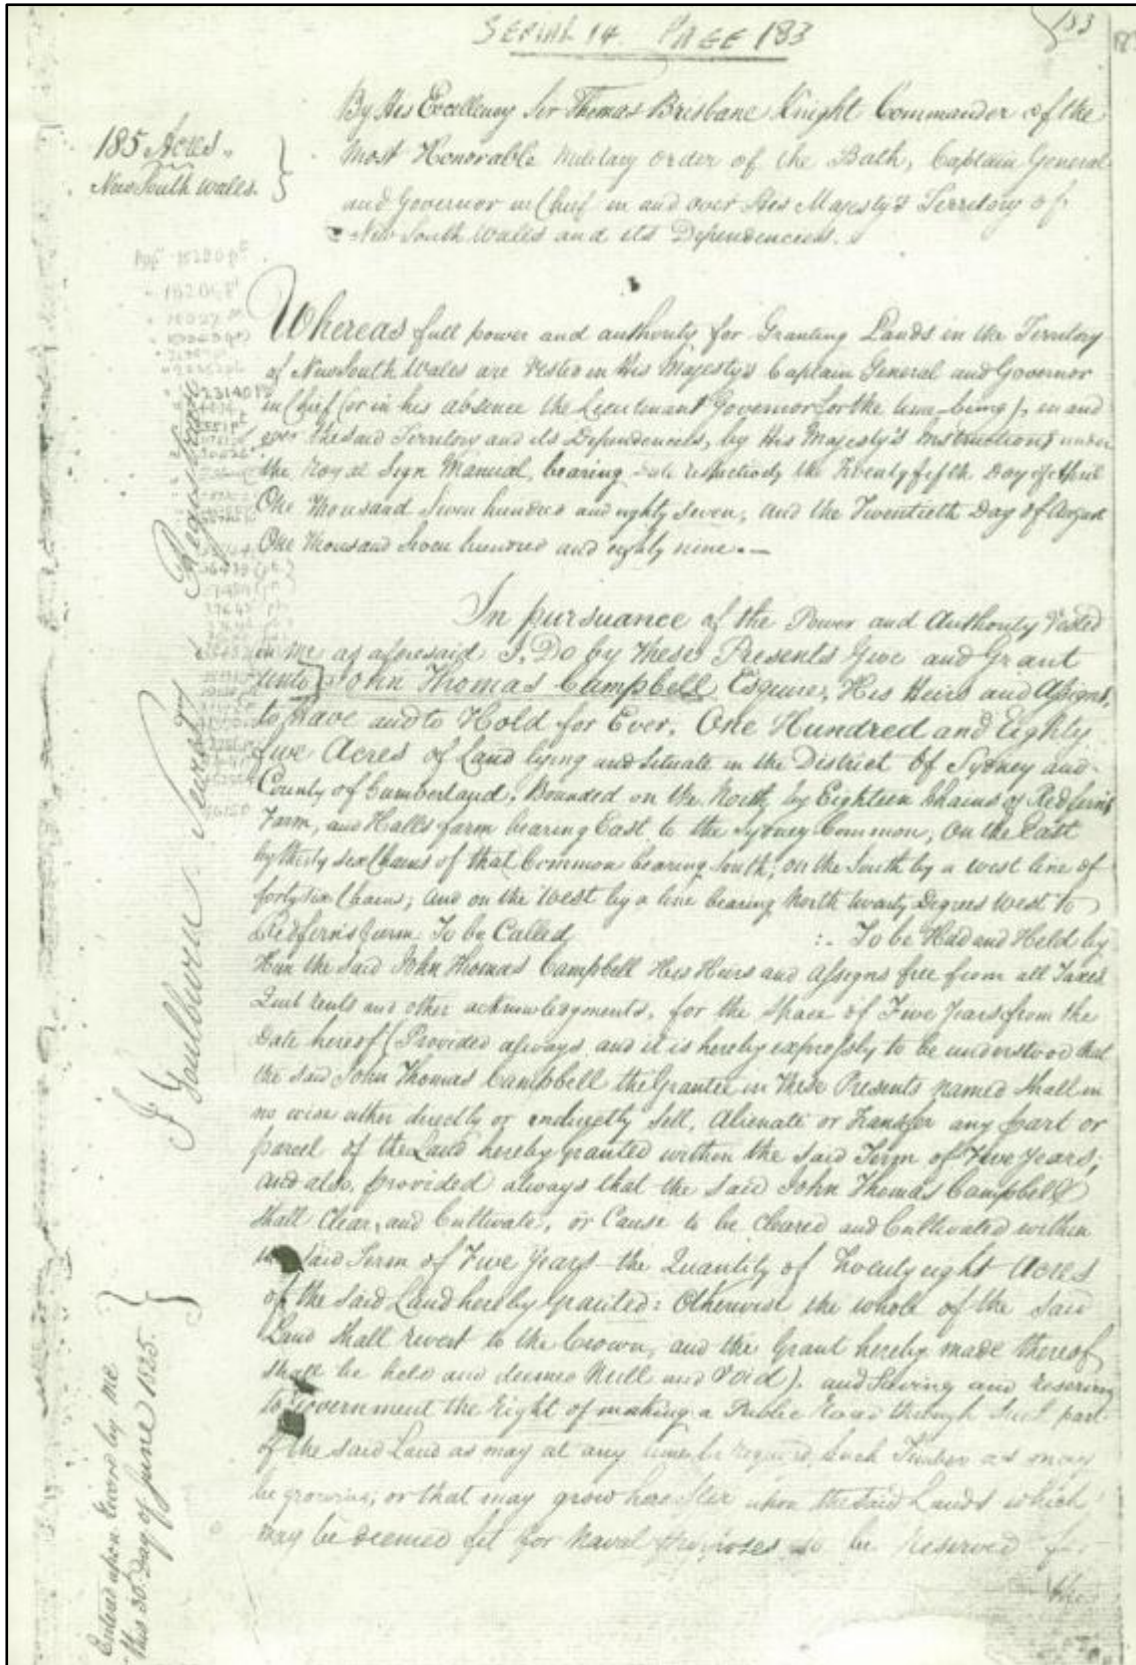 SERIAL 14. PAGE 183
183
185 Acres.
New South Wales.
By His Excellency Sir Thomas Brisbane Knight Commander of the
Most Honorable Military Order of the Bath, Captain General
and Governor in Chief in and over His Majesty's Territory of
New South Wales and its Dependencies.
Whereas full power and authority for Granting Lands in the Territory
of New South Wales are Vested in His Majesty's Captain General and Governor
in Chief (or in his absence the Lieutenant Governor for the time being), in and
over the said Territory and its Dependencies, by His Majesty's Instructions under
the Royal Sign Manual, bearing date respectively the Twenty fifth Day of April
One thousand Seven hundred and eighty seven, and the Twentieth Day of August
One thousand Seven hundred and eighty nine.—
In pursuance of the Power and Authority Vested
in me as aforesaid I, Do by These Presents Give and Grant
unto John Thomas Campbell Esquire, His Heirs and Assigns,
to Have and to Hold for Ever, One Hundred and Eighty
five Acres of Land lying and Situate in the District of Sydney and
County of Cumberland, Bounded on the North by Eighteen Chains of Redfern's
Farm, and Halls farm bearing East to the Sydney Common, On the East
by thirty six Chains of that Common bearing South; on the South by a west line of
forty six Chains; and on the West by a line bearing North twenty Degrees West to
Redfern's farm To be Called :- To be Had and Held by
Him the said John Thomas Campbell His Heirs and Assigns free from all Taxes
Quit Rents and other acknowledgments, for the Space of Five Years from the
Date hereof (Provided always and it is hereby expressly to be understood that
the said John Thomas Campbell the Grantee in these Presents named shall in
no wise either directly or indirectly Sell, Alienate or Transfer any part or
parcel of the Land hereby granted within the said Term of Five Years;
and also, provided always that the said John Thomas Campbell
shall Clear, and Cultivate, or Cause to be Cleared and Cultivated within
the said Term of Five Years the Quantity of Twenty eight Acres
of the said Land hereby granted: Otherwise the whole of the said
Land Shall revert to the Crown, and the Grant hereby made thereof
shall be held and deemed Null and Void). and Saving and reserving
to Government the Right of making a Public Road through such part
of the said Land as may at any time be required, Such Timber as may
be growing, or that may grow hereafter upon the said Lands which
may be deemed fit for Naval Purposes to be Reserved for
the
F Goulburn Secretary Registrar
Entered upon Record by me
this 30 Day of June 1825.